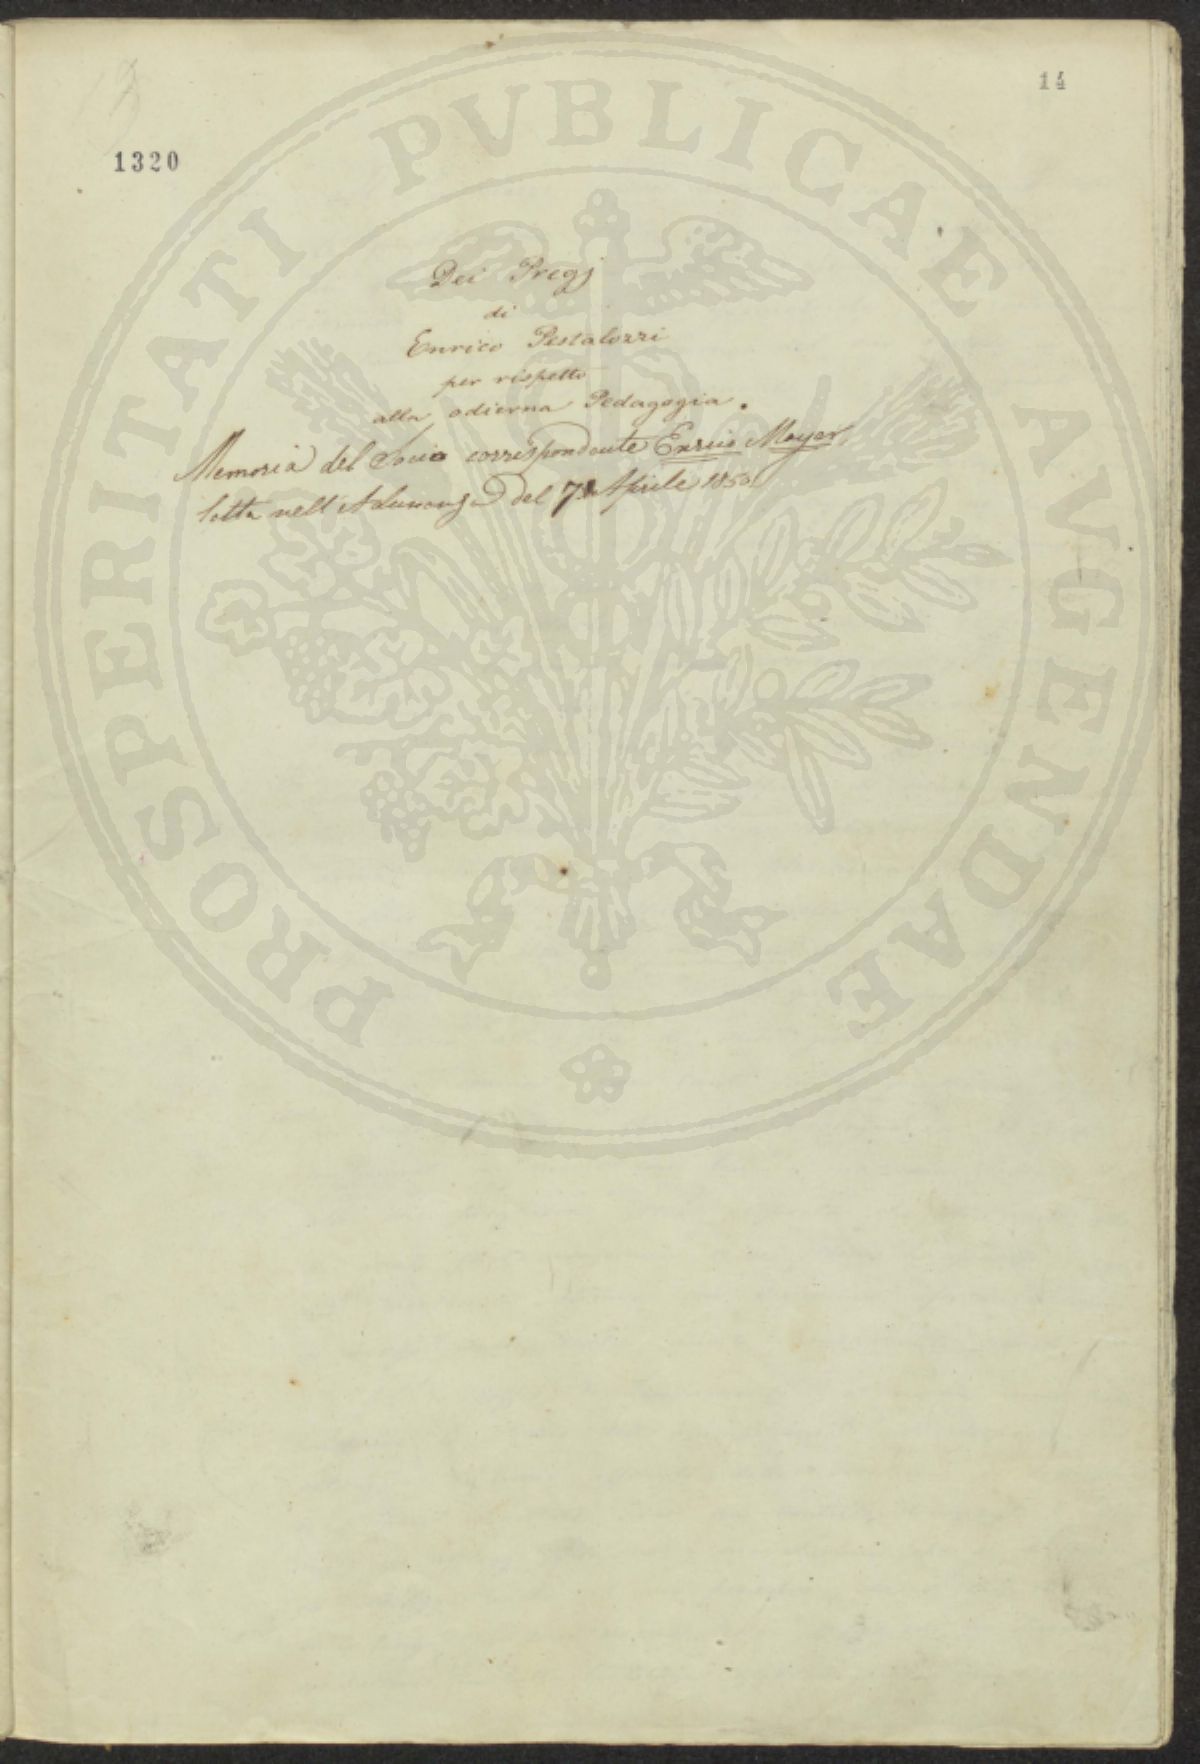 14
1320
Dei Pregj
di
Enrico Pestalozzi
per rispetto
alla odierna Pedagogia.
Memoria del Socio corrispondente Enrico Mayer,
letta nell'Adunanza del 7 Aprile 1850
PROSPERITATI PVBLICAE AVGENDAE